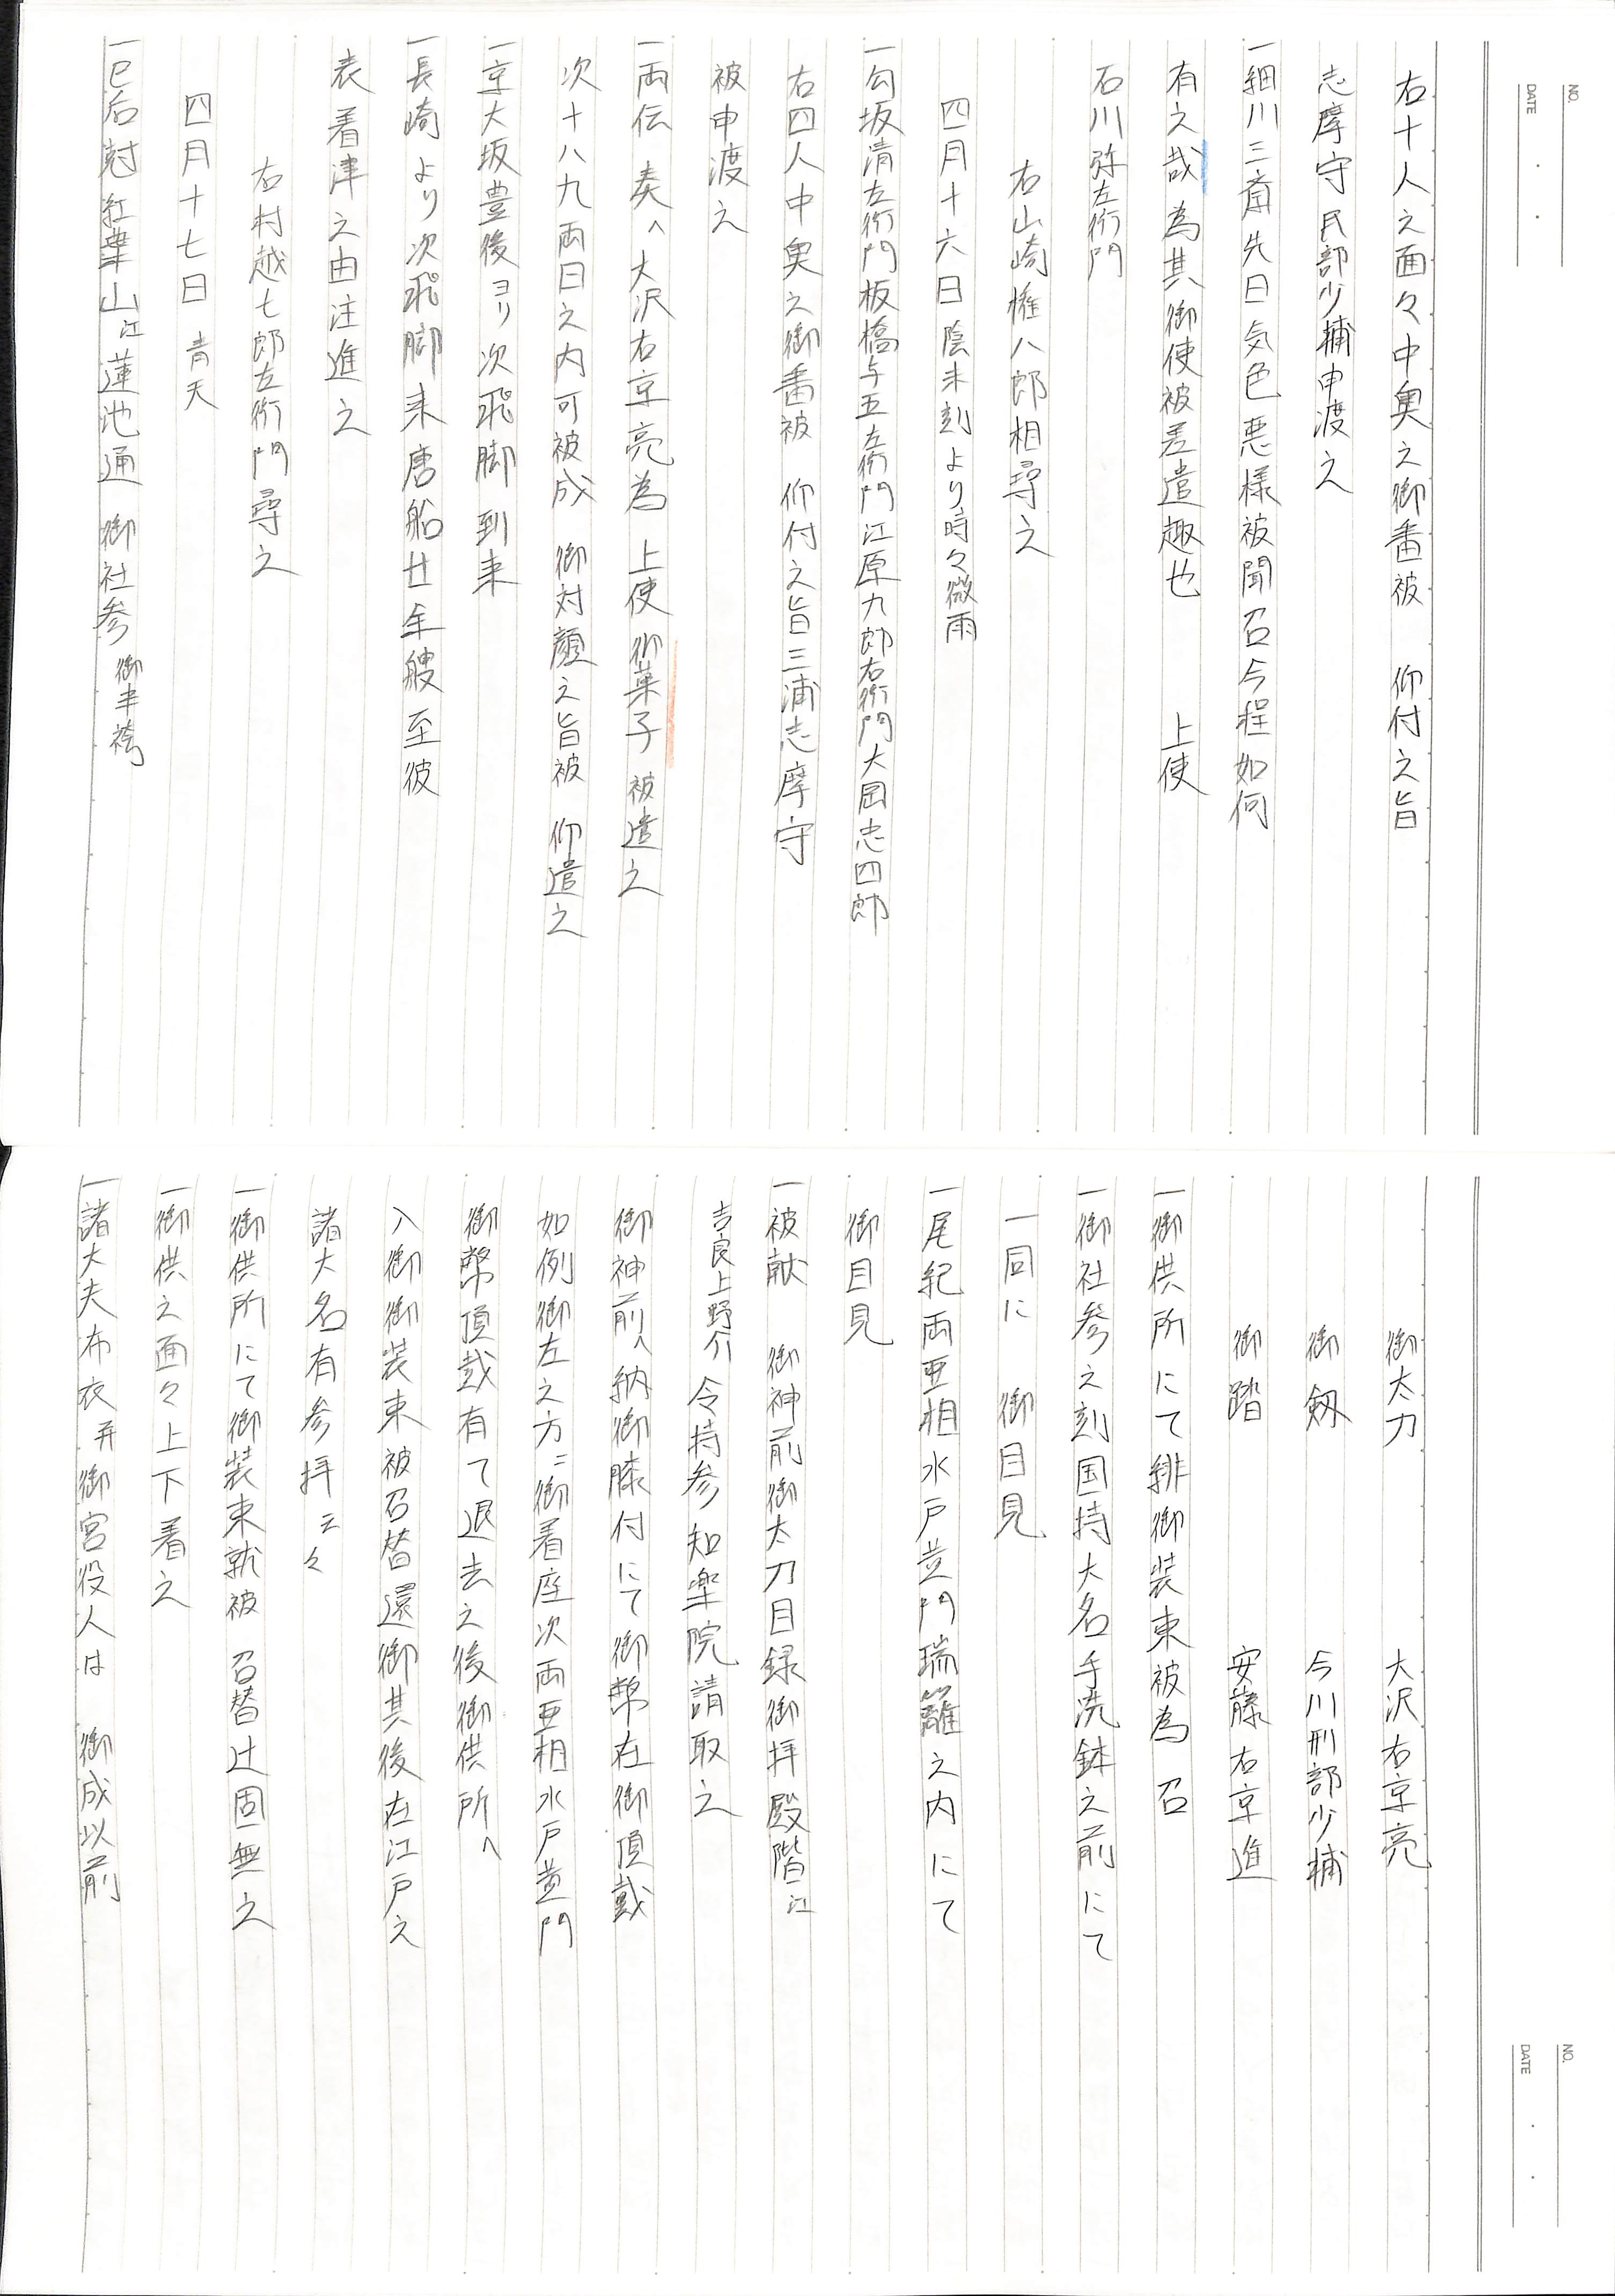 NO.
DATE
右十人之面々中奥之御番被　仰付之旨
志摩守民部少輔申渡之
一細川三斎先日気色悪様被聞召今程如何
有之哉為其御使被差遣趣也　　上使
石川弥左衛門
右山崎権八郎相尋之
四月十六日陰未刻より時々微雨
一勾坂清左衛門板橋与五左衛門江原九郎右衛門大岡忠四郎
右四人中奥之御番被　仰付之旨三浦志摩守
被申渡之
一両伝奏へ大沢右京亮為　上使御菓子被遣之
次十八九両日之内可被成　御対顔之旨被　仰遣之
一京大坂豊後ヨリ次飛脚到来
一長崎より次飛脚来唐船廿余艘至彼
表着津之由注進之
右村越七郎左衛門尋之
四月十七日　青天
一巳后尅紅葉山江蓮池通　御社参　御半袴
NO.
DATE
御太刀　　　　　大沢右京亮
御剱　　　　　今川刑部少輔
御踏　　　　　安藤右京進
一御供所にて緋御装束被為　召
一御社参之刻国持大名手洗鉢之前にて
一同に　御目見
一尾紀両亜相水戸黄門瑞籬之内にて
御目見
一被献　御神前御太刀目録御拝殿階江
吉良上野介令持参知楽院請取之
御神前へ納御膝付にて御幣在御頂戴
如例御左之方ニ御着座次両亜相水戸黄門
御幣頂戴有て退去之後御供所へ
入御御装束被召替還御其後在江戸之
諸大名有参拝云々
一御供所にて御装束就被　召替辻固無之
一御供之面々上下着之
一諸大夫布衣并御宮役人は　御成以前